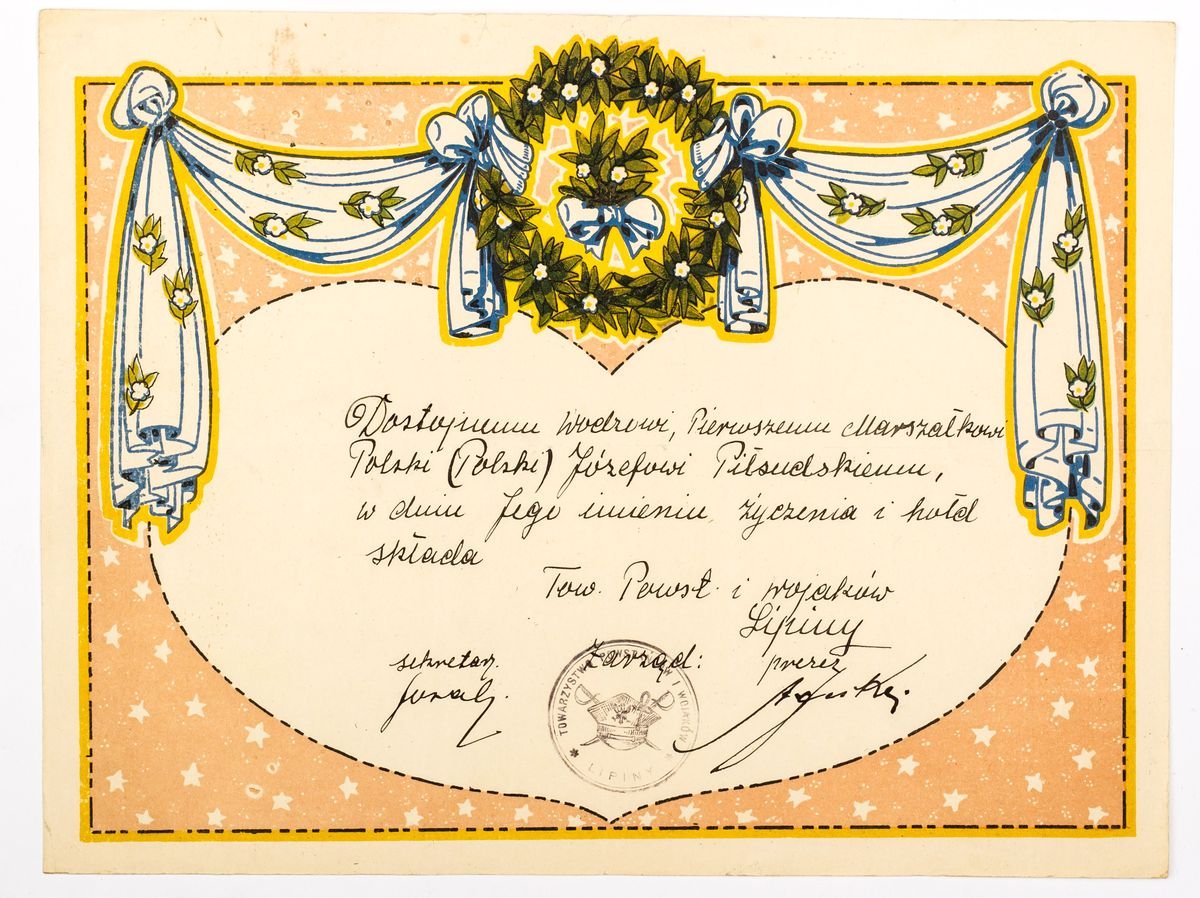 Dostojnemu Wodzowi, Pierwszemu Marszałkowi
Polski (Polski) Józefowi Piłsudskiemu,
w dniu Jego imienin, życzenia i hołd
składa
Tow. Powst. i wojaków
Lipiny
sekretarz. Zarząd: prezez
TOWARZYSTWO POWSTAŃCÓW I WOJAKÓW
LIPINY